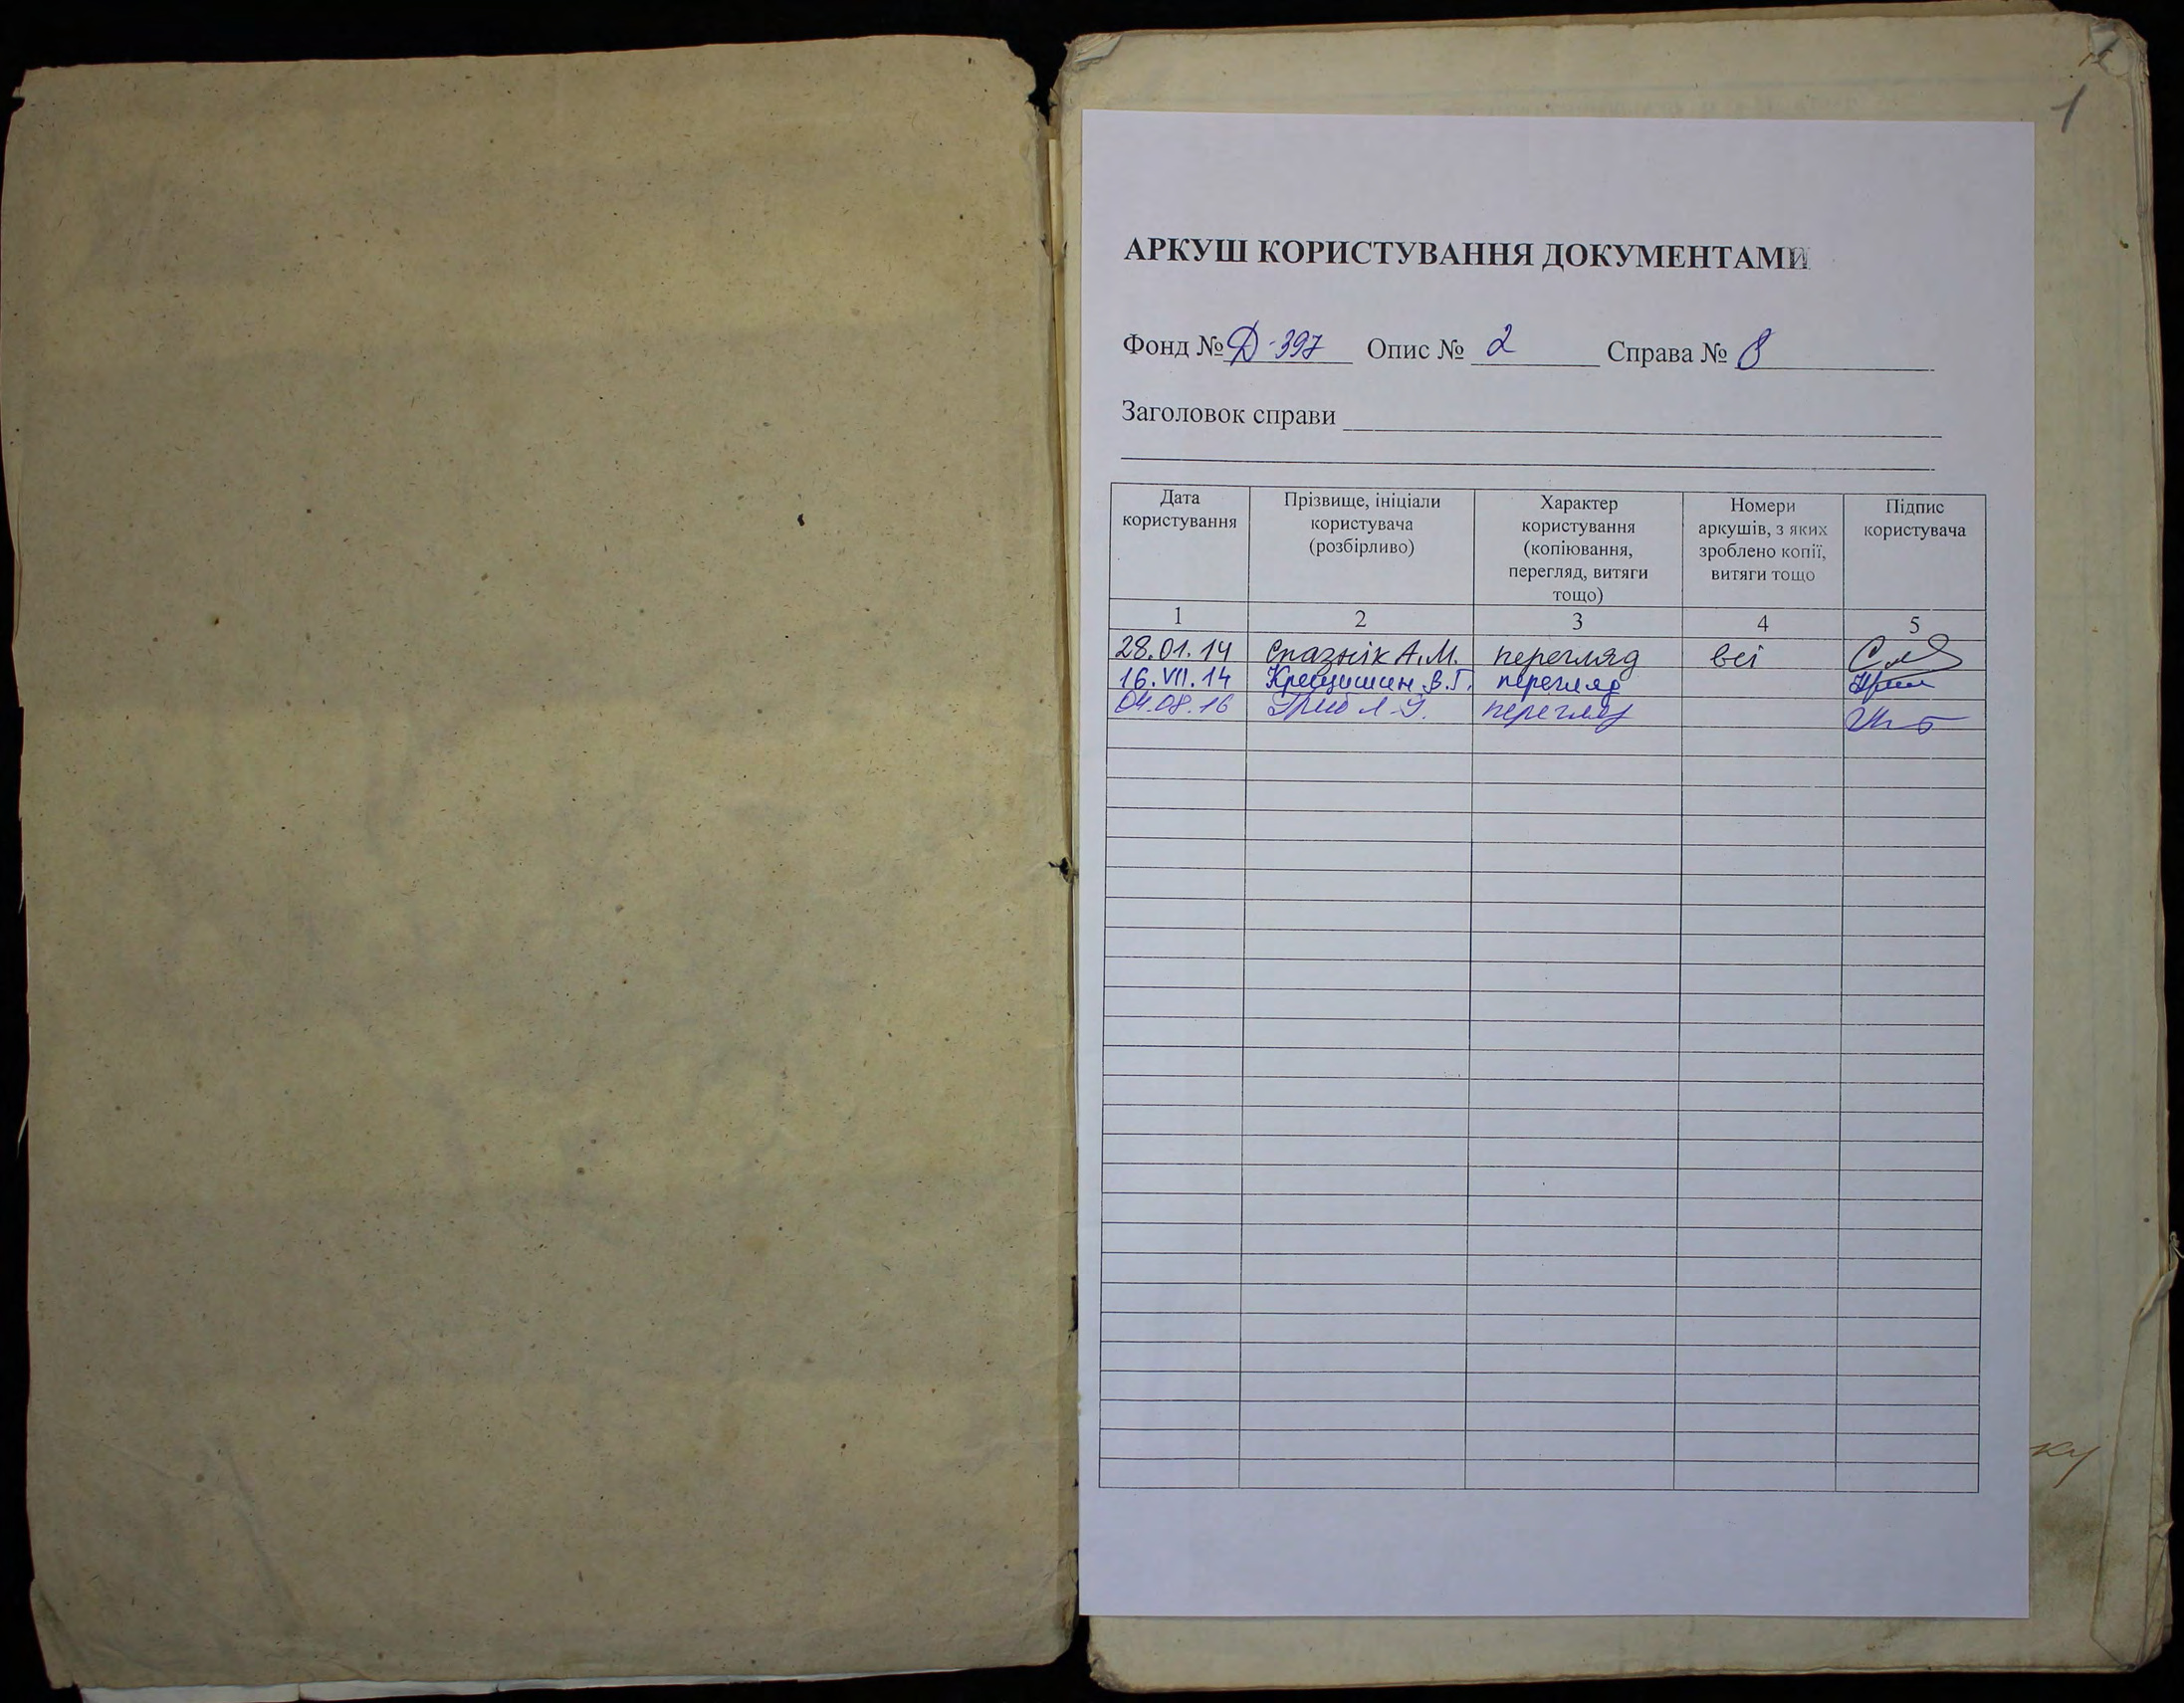 1
АРКУШ КОРИСТУВАННЯ ДОКУМЕНТАМИ
Фонд № Д-397 Опис № 2 Справа № 8
Заголовок справи
Дата користування
Прізвище, ініціали користувача (розбірливо)
Характер користування (копіювання, перегляд, витяги тощо)
Номери аркушів, з яких зроблено копії, витяги тощо
Підпис користувача
1 2 3 4 5
28.01.14 А.М. перегляд всі
16.VII.14 Крещишин В.Г. перегляд
04.08.16 перегляд
ку